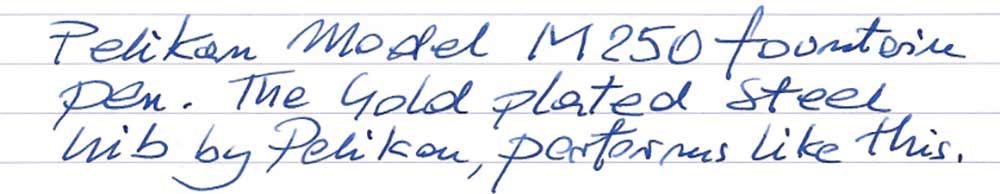 Pelikan Model M250 fountain
pen. The Gold plated steel
nib by Pelikan, performs like this.